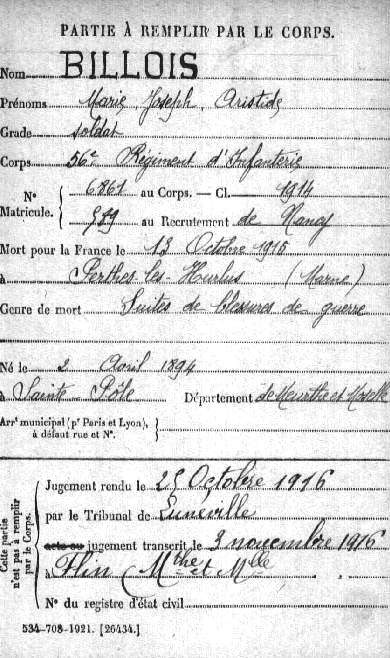 PARTIE À REMPLIR PAR LE CORPS.
Nom BILLOIS
Prénoms Marie, Joseph, Aristide
Grade soldat
Corps 56e Régiment d'Infanterie
N° Matricule. { 6861 au Corps. — Cl. 1914
589 au Recrutement de Nancy
Mort pour la France le 13 Octobre 1915
à Perthes-les-Hurlus (Marne)
Genre de mort Suites de blessures de guerre
Né le 2 Avril 1894
à Sainte-Pôle Département de Meurthe et Moselle
Arrt municipal (pr Paris et Lyon), à défaut rue et N°.
Cette partie n'est pas à remplir par le Corps.
Jugement rendu le 25 Octobre 1916
par le Tribunal de Lunéville
acte ou jugement transcrit le 3 novembre 1916
à Flin (Mthe et Mlle
N° du registre d'état civil
534-708-1921. [26434.]